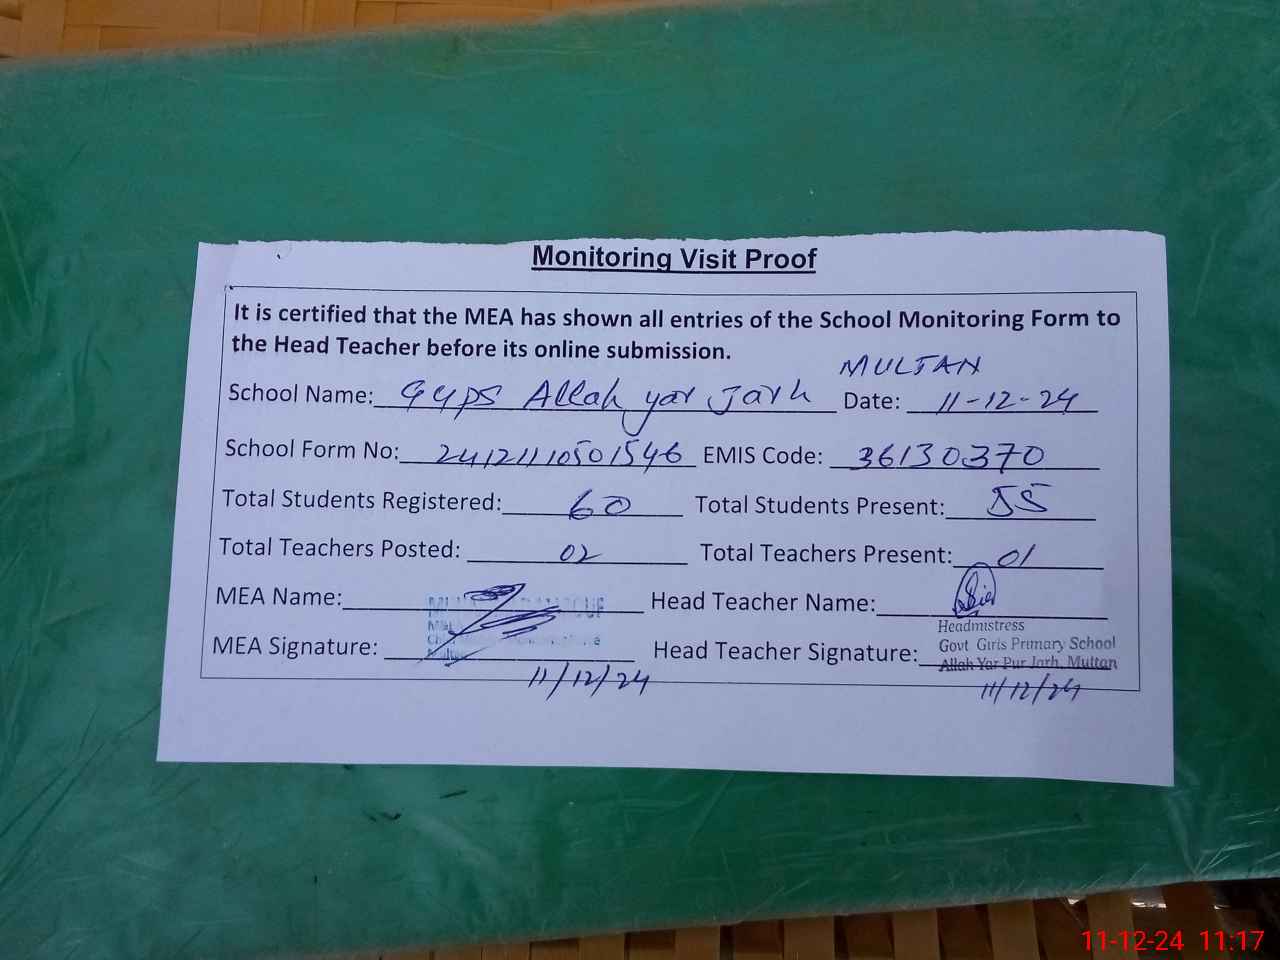 Monitoring Visit Proof
It is certified that the MEA has shown all entries of the School Monitoring Form to
the Head Teacher before its online submission.
MULTAN
School Name: GGPS Allah yar Jarh Date: 11-12-24
School Form No: 2412111050 1546 EMIS Code: 36130370
Total Students Registered: 60 Total Students Present: 55
Total Teachers Posted: 02 Total Teachers Present: 01
MEA Name: Head Teacher Name:
Headmistress
Govt Girls Primary School
MEA Signature: Head Teacher Signature: Allah Yar Pur Jarh, Multan
11/12/24 11/12/24
11-12-24 11:17